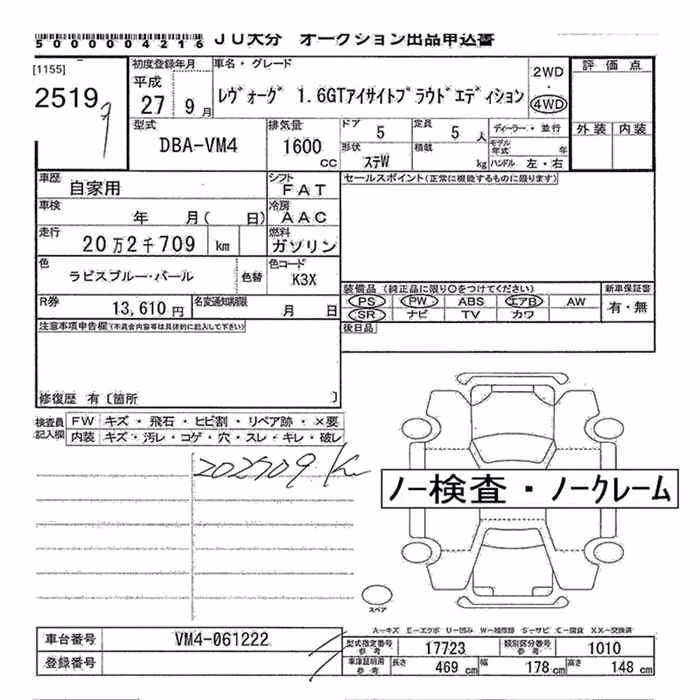 5000004216 JU大分 オークション出品申込書
[1155]
25197
初度登録年月
平成
27 9月
車名・グレード
レヴォーグ 1.6GTアイサイトプラウドエディション
2WD
・
4WD
評価点
外装 内装
型式
DBA-VM4
排気量
1600
cc
ドア 5
定員 5人
ディーラー・並行
モデル年式 年
形状 ステW
積載 kg
ハンドル 左・右
車歴 自家用
シフト FAT
セールスポイント(正常に機能するものに限ります)
車検 年 月( 日)
冷房 AAC
走行 20万2千709 km
燃料 ガソリン
色 ラピスブルー・パール
色替
色コード K3X
装備品(純正品に限り○をつけてください)
新車保証書
PS PW ABS エアB AW
有・無
SR ナビ TV カワ
R券 13,610円
名変通知期限 月 日
後日品
注意事項申告欄(不具合内容等は具体的に記入して下さい)
修復歴 有〔箇所 〕
検査員記入欄
FW キズ・飛石・ヒビ割・リペア跡・×要
内装 キズ・汚レ・コゲ・穴・スレ・キレ・破レ
202709 Km
ノー検査・ノークレーム
スペア
A―キズ E―エクボ U―凹み W―補修跡 S―サビ C―腐食 XX―交換済
車台番号 VM4-061222
型式指定番号 参考 17723
類別区分番号 参考 1010
登録番号
車庫証明用 参考
長さ 469 cm
幅 178 cm
高さ 148 cm